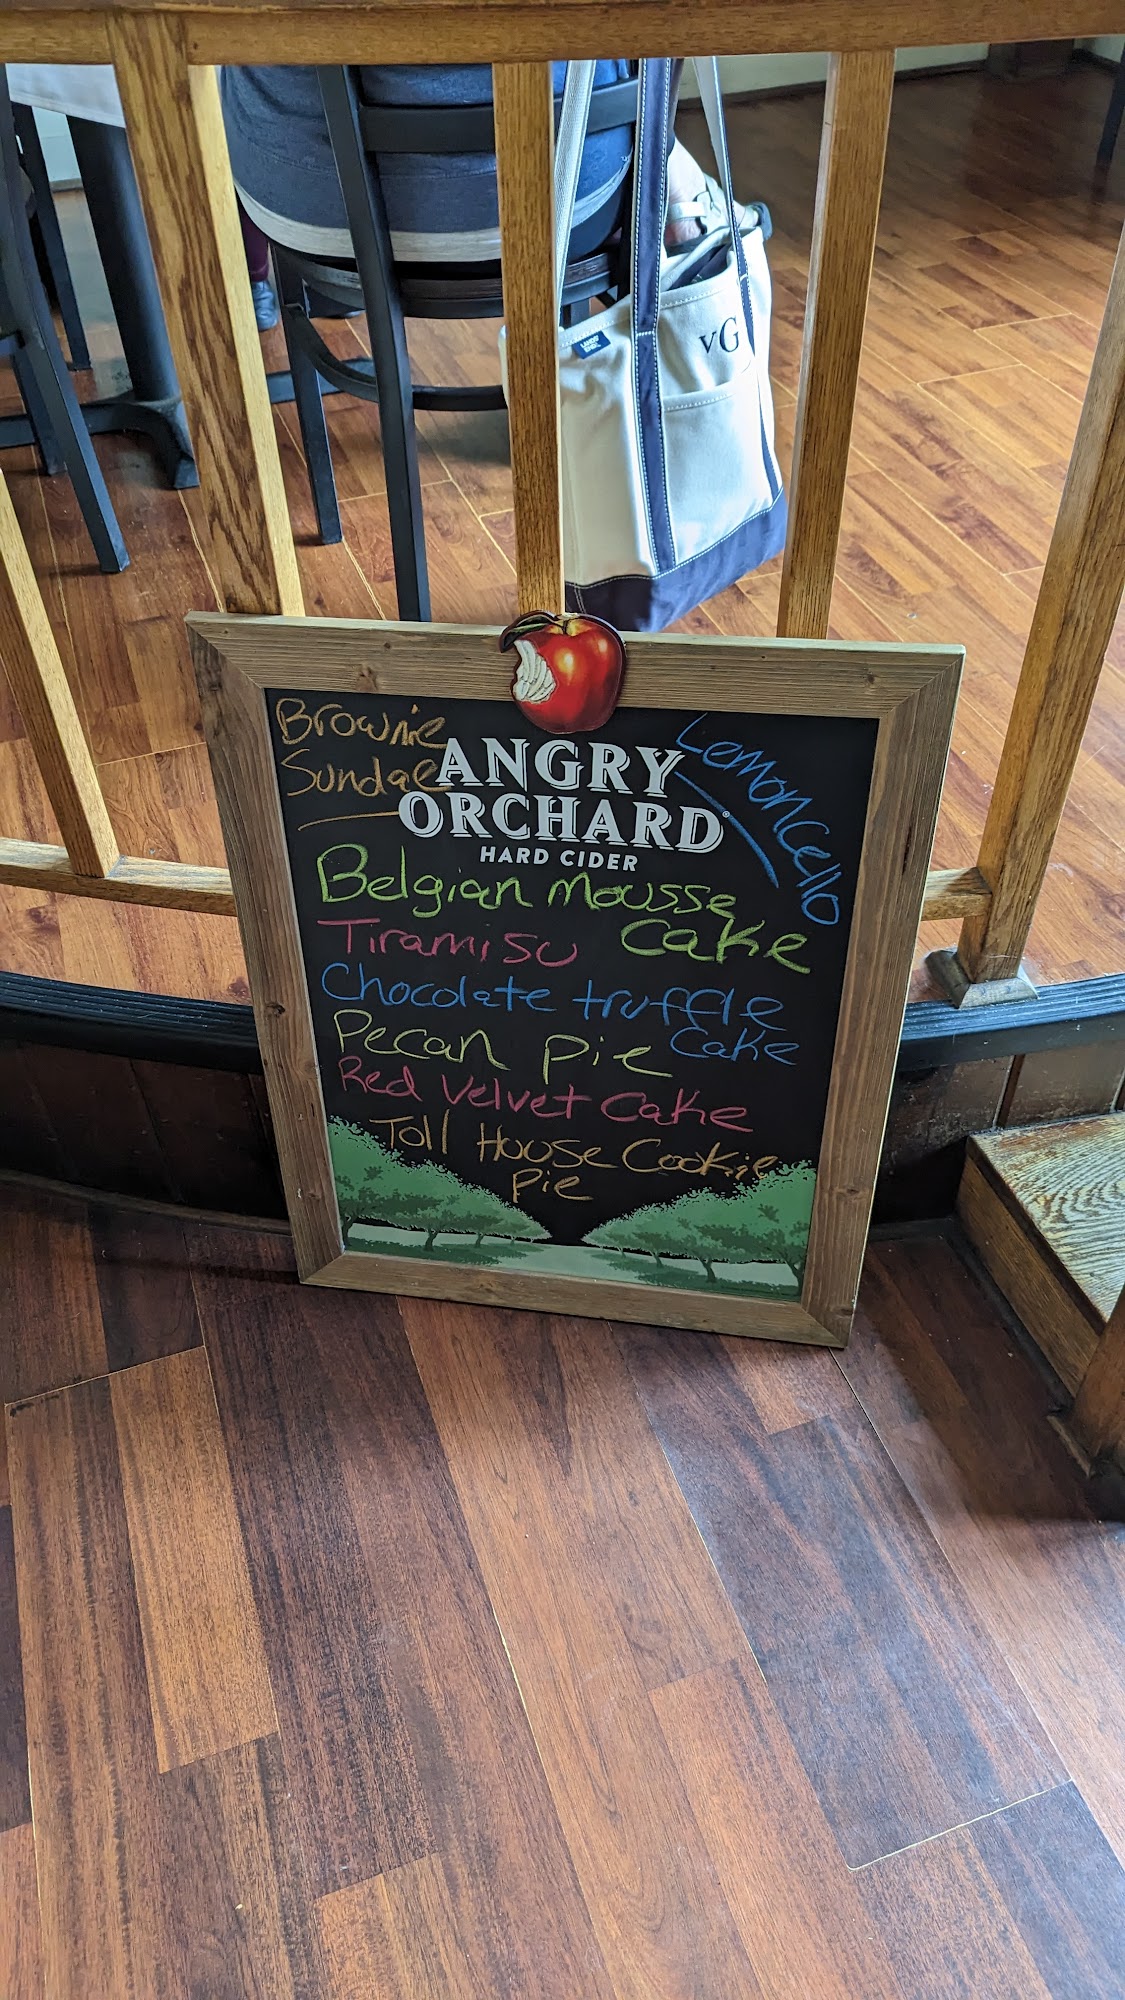 vG
LANDS'
END
Brownie
Sundae
Lemoncello
ANGRY
ORCHARD®
HARD CIDER
Belgian mousse
Cake
Tiramisu
Chocolate truffle
Cake
Pecan Pie
Red Velvet Cake
Toll House Cookie
Pie